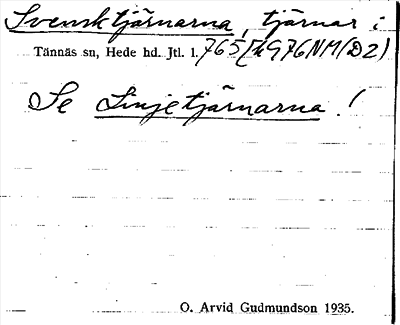 Svensktjärnarna, tjärnar i
Tännäs sn, Hede hd. Jtl. l. 765[k976NM(D2)
Se Linjetjärnarna!
O. Arvid Gudmundson 1935.